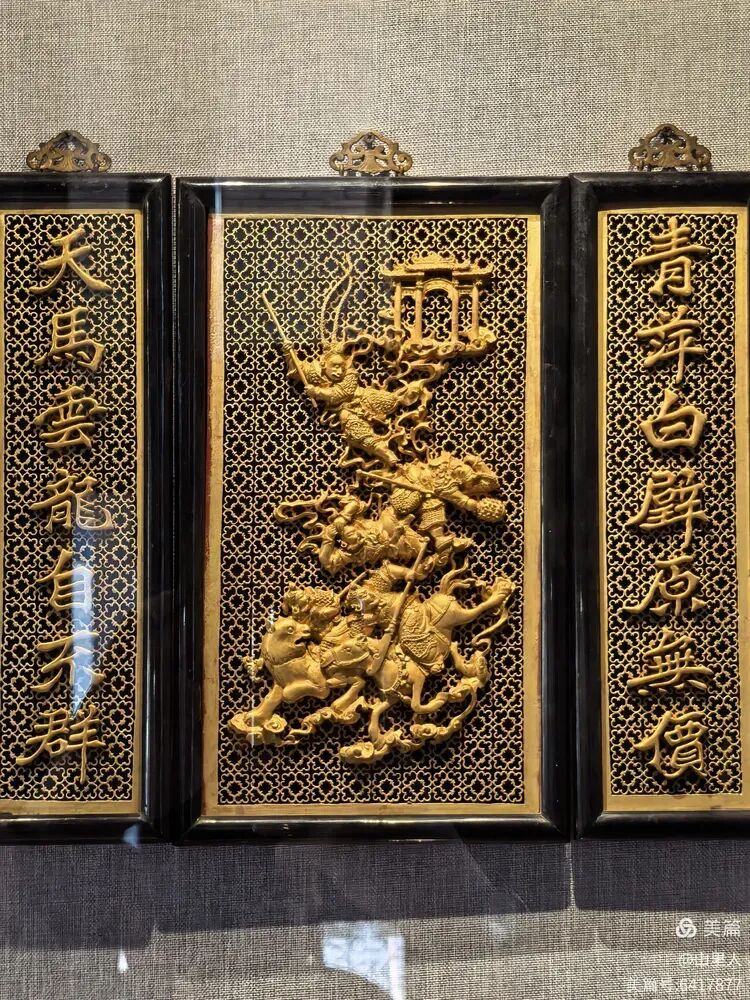 青萍白璧原無價
天馬雲龍自不群
美篇
@山里人
美篇号:6417877